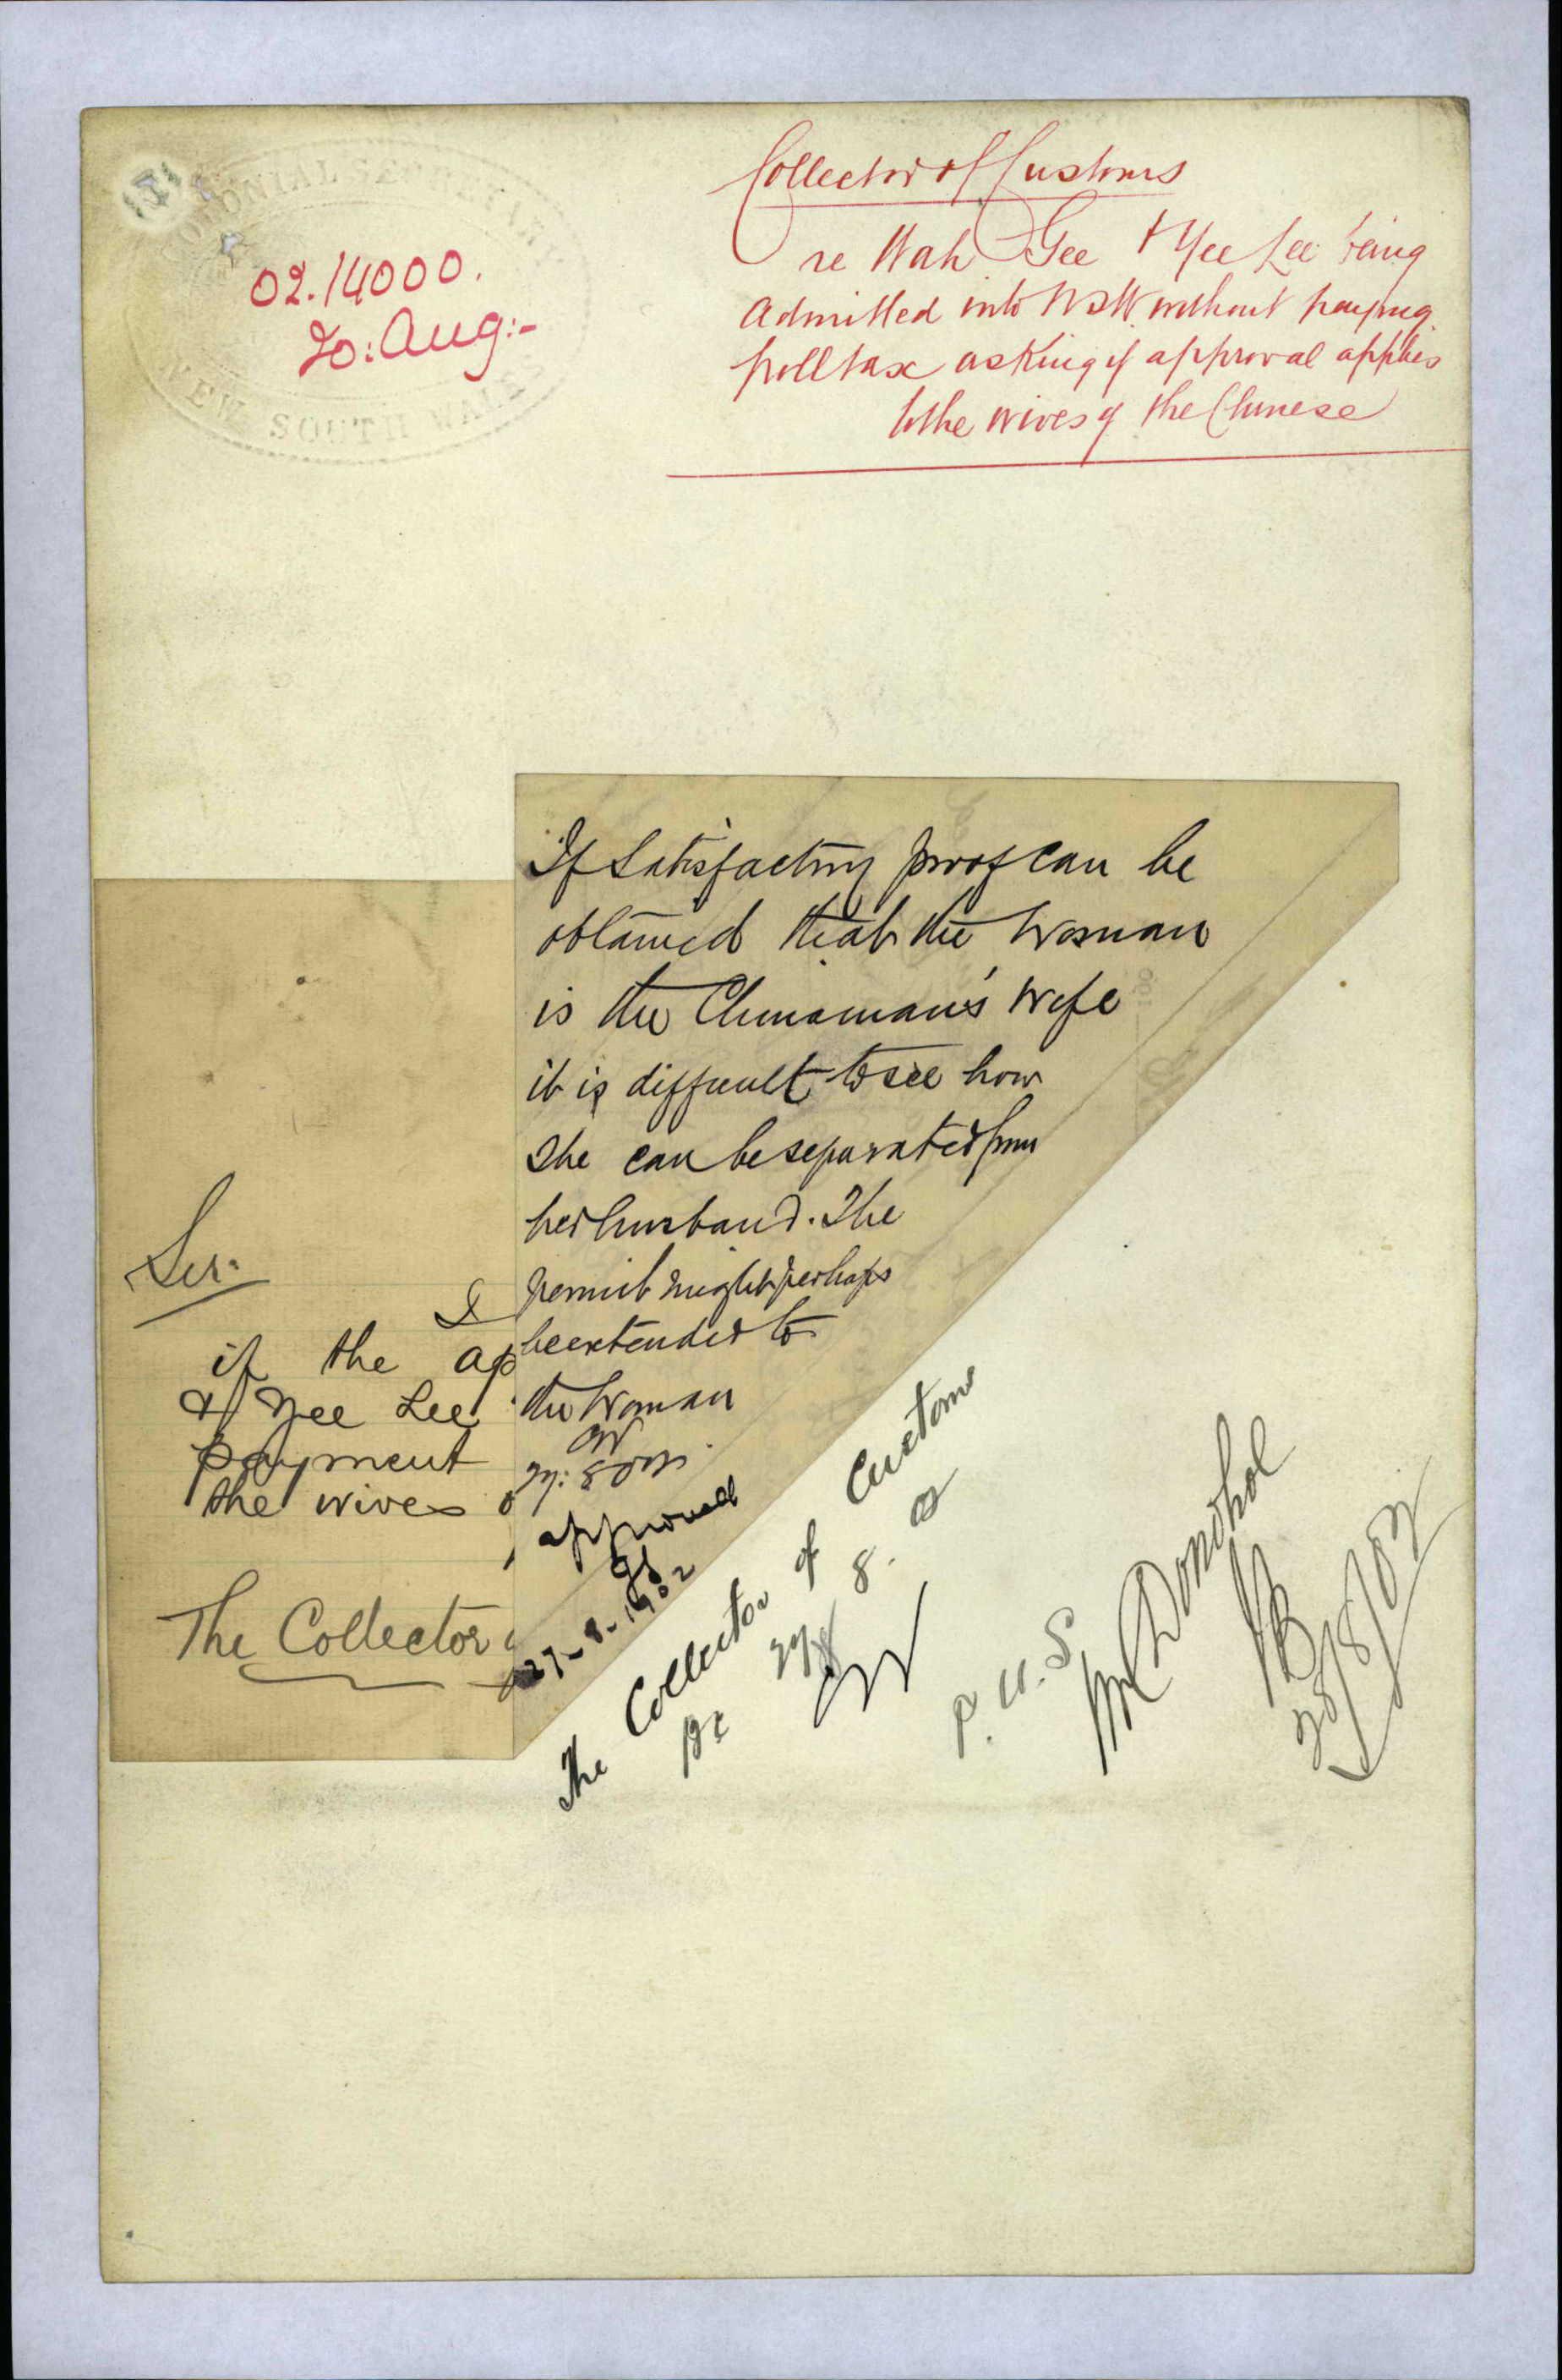 COLONIAL SECRETARY
NEW SOUTH WALES
02.14000.
20: Aug:-
Collector of Customs
re Wah Gee & Yee Lee being
admitted into NSW without paying
poll tax asking if approval applies
to the wives of the Chinese
If satisfactory proof can be
obtained that the woman
is the Chinaman's wife
it is difficult to see how
she can be separated from
her husband. The
permit might perhaps
be extended to
the woman
27: 8
approved
27-8-1902
Sir
I
if the ap
& Yee Lee
payment
the wives o
The Collector
The Collector of Customs
BC 27 8. 02
P.U.S
Mr Donohol
28/8/02